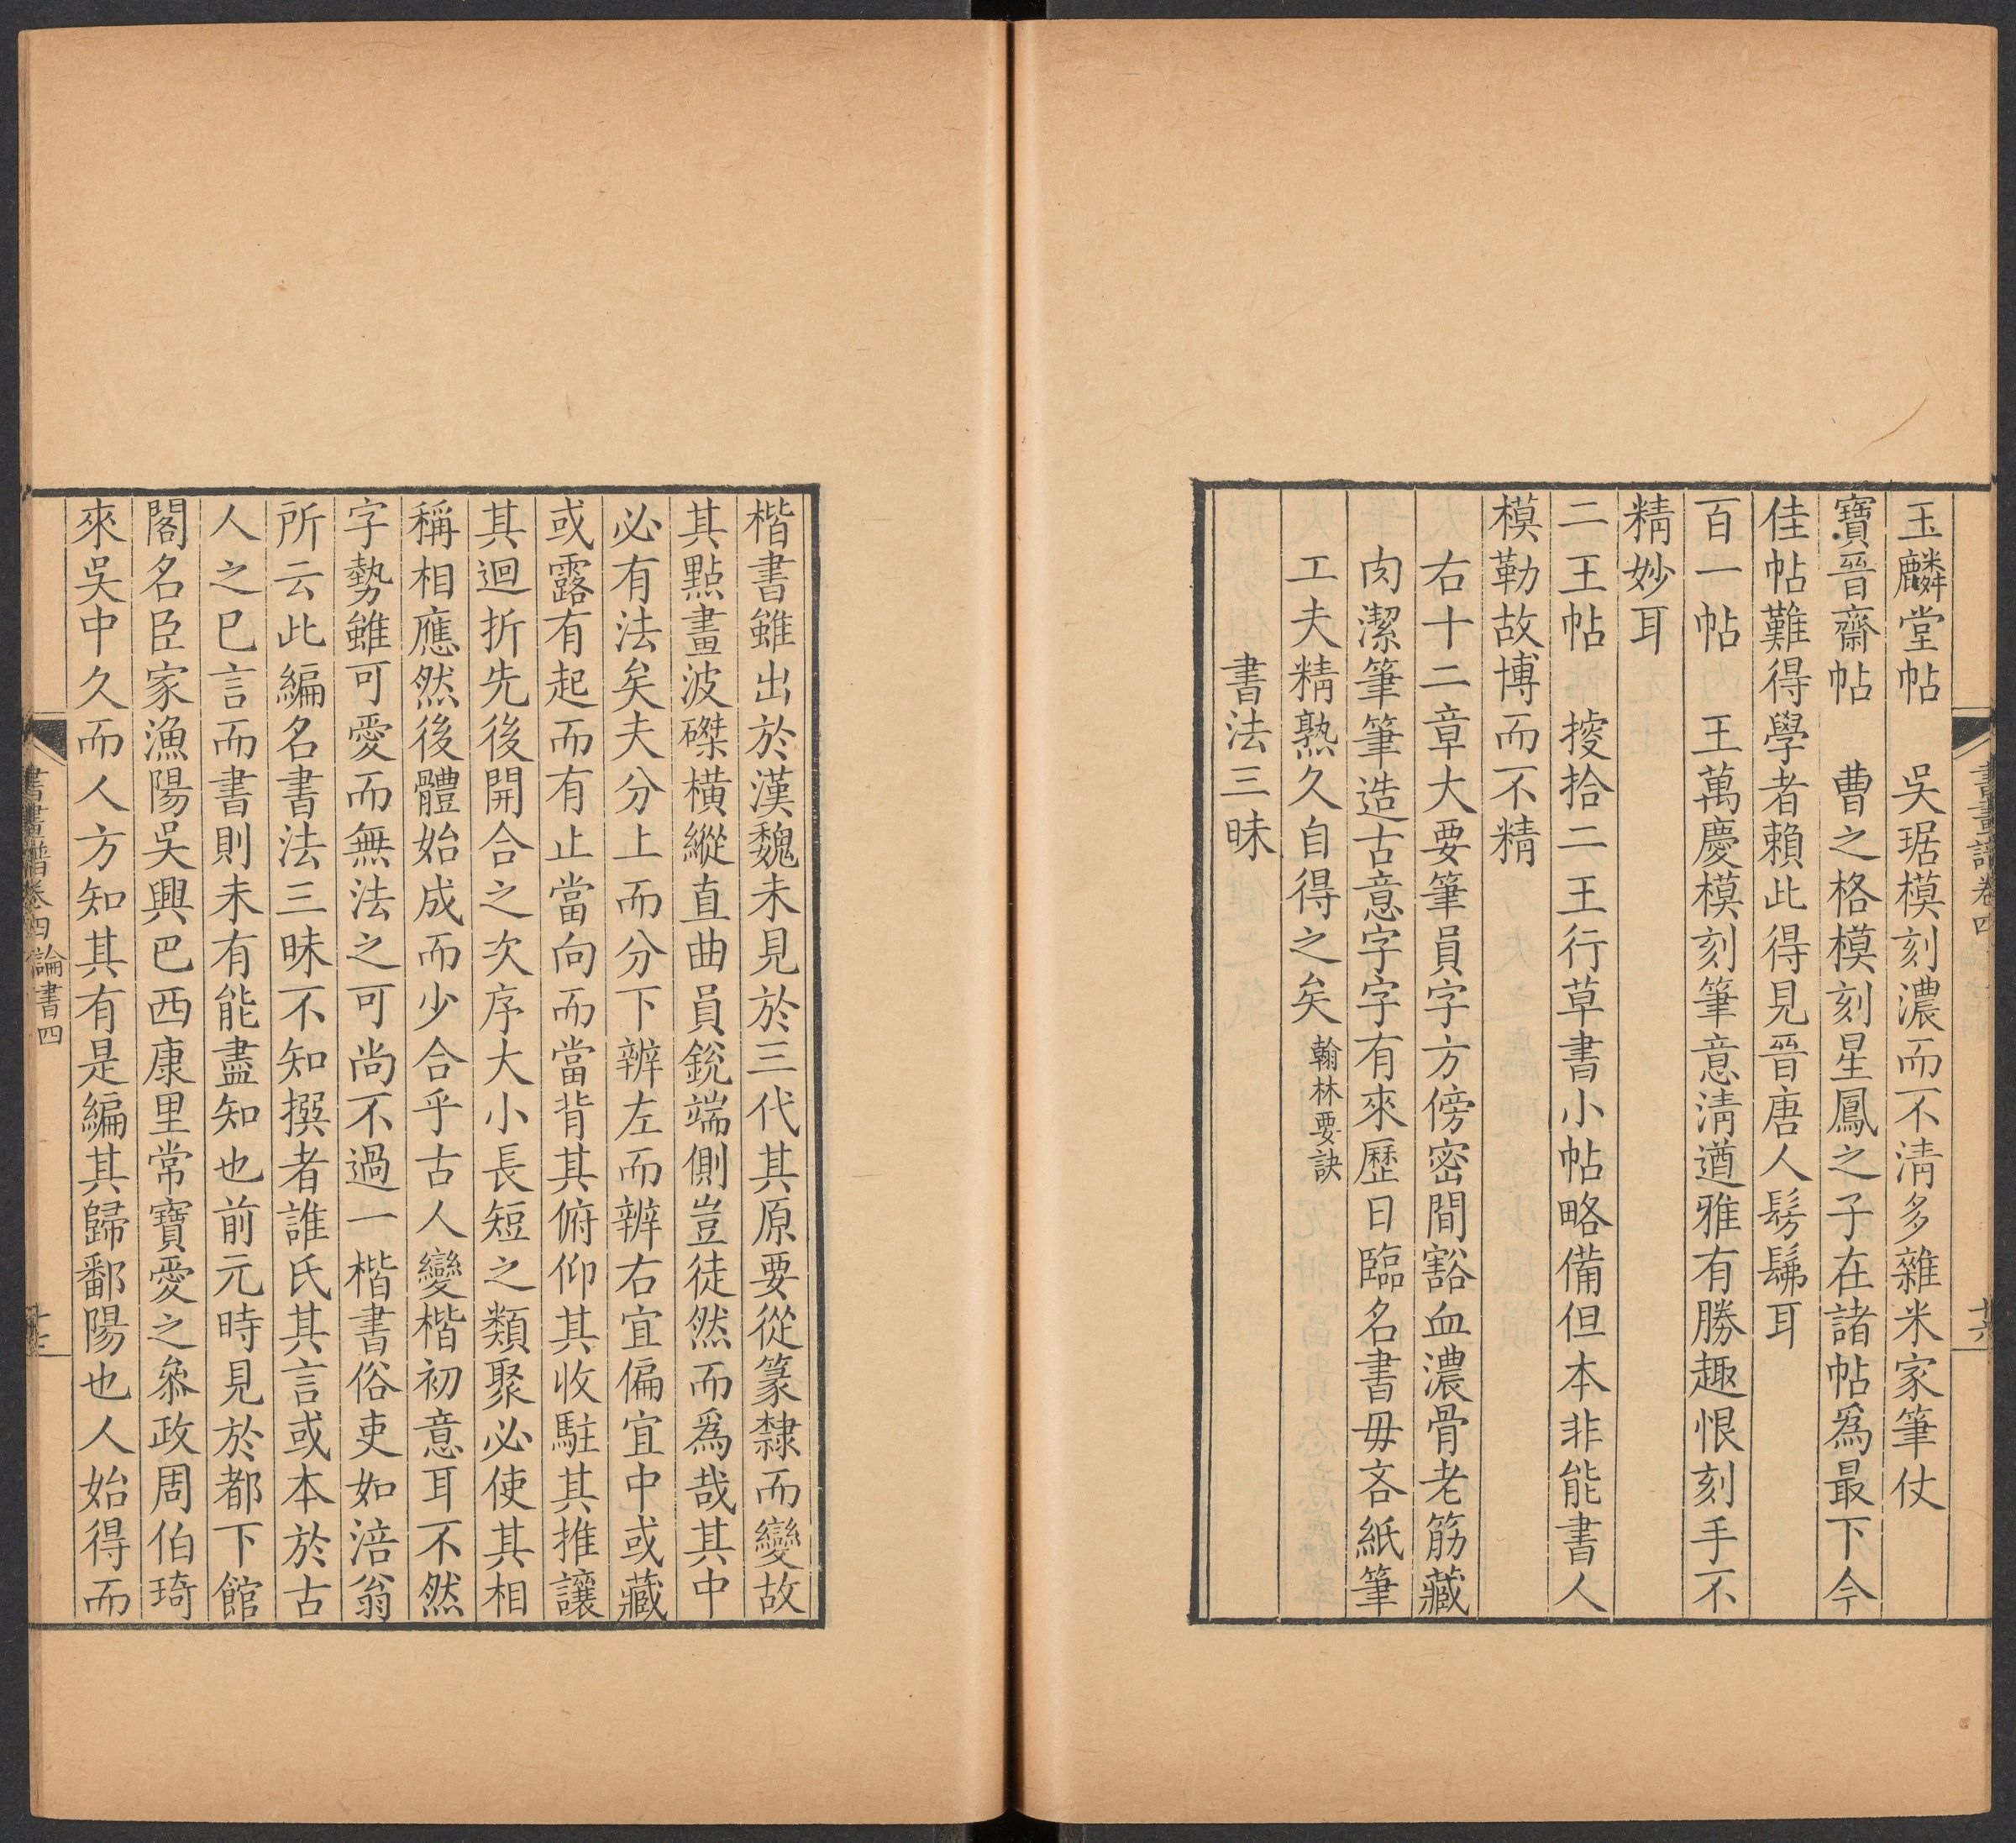 玉麟堂帖　吳琚模刻濃而不淸多雜米家筆仗
寶晉齋帖　曹之格模刻星鳳之子在諸帖爲最下今
佳帖難得學者賴此得見晉唐人髣髴耳
百一帖　王萬慶模刻筆意淸遒雅有勝趣恨刻手不
精妙耳
二王帖　㨮拾二王行草書小帖略備但本非能書人
模勒故博而不精
右十二章大要筆員字方傍密間豁血濃骨老筋藏
肉潔筆筆造古意字字有來歷日臨名書毋吝紙筆
工夫精熟久自得之矣翰林要訣
書法三昧
楷書雖出於漢魏未見於三代其原要從篆隸而變故
其點畫波磔橫縱直曲員銳端側豈徒然而爲哉其中
必有法矣夫分上而分下辨左而辨右宜偏宜中或藏
或露有起而有止當向而當背其俯仰其收駐其推讓
其迴折先後開合之次序大小長短之類聚必使其相
稱相應然後體始成而少合乎古人變楷初意耳不然
字勢雖可愛而無法之可尚不過一楷書俗吏如涪翁
所云此編名書法三昧不知撰者誰氏其言或本於古
人之巳言而書則未有能盡知也前元時見於都下館
閣名臣家漁陽吳興巴西康里常寶愛之叅政周伯琦
來吳中久而人方知其有是編其歸鄱陽也人始得而
書畫譜卷四論書四